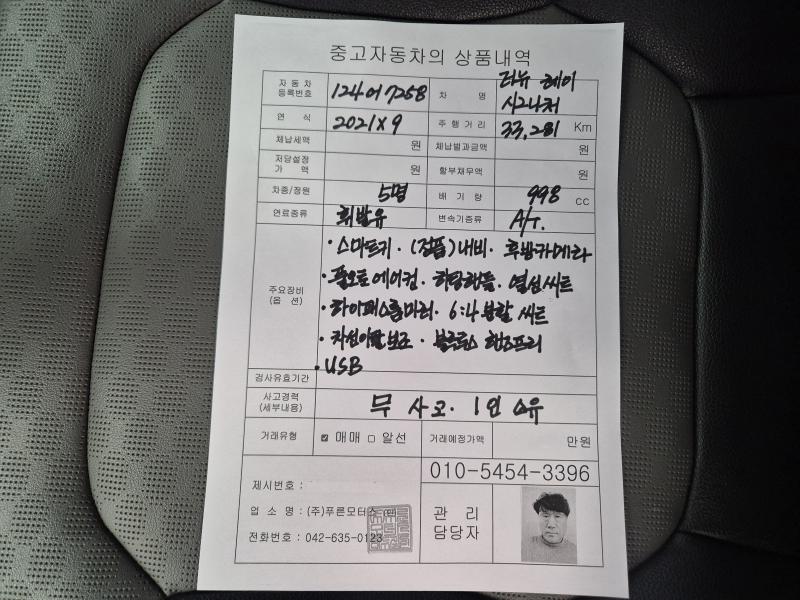 중고자동차의 상품내역
자 동 차 등록번호 124어7258 차 명 더뉴 레이 시그니처
연 식 2021X9 주 행 거 리 33,281 Km
체납세액 원 체납벌과금액 원
저당설정 가 액 원 할부채무액 원
차종/정원 5명 배 기 량 998 CC
연료종류 휘발유 변속기종류 A/T.
주요장비 (옵 션)
· 스마트키 · (정품)내비 · 후방카메라
· 풀오토에어컨 · 히팅핸들 · 열선씨트
· 하이패스룸미러 · 6:4 분할 씨트
· 차선이탈보조 · 블루투스 핸즈프리
· USB
검사유효기간
사고경력 (세부내용) 무 사고 · 1인 소유
거래유형 ☑ 매매 □ 알선 거래예정가액 만원
010-5454-3396
제시번호 :
업 소 명 : (주)푸른모터스
전화번호 : 042-635-0123
관 리
담당자